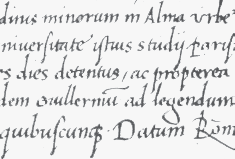 dinus minorum in Alma Urbe
niuersitate istius studij paris
es dies detentus, ac propterea
dem Guillermū ad legendum
quibuscunqȝ Datum Rōm